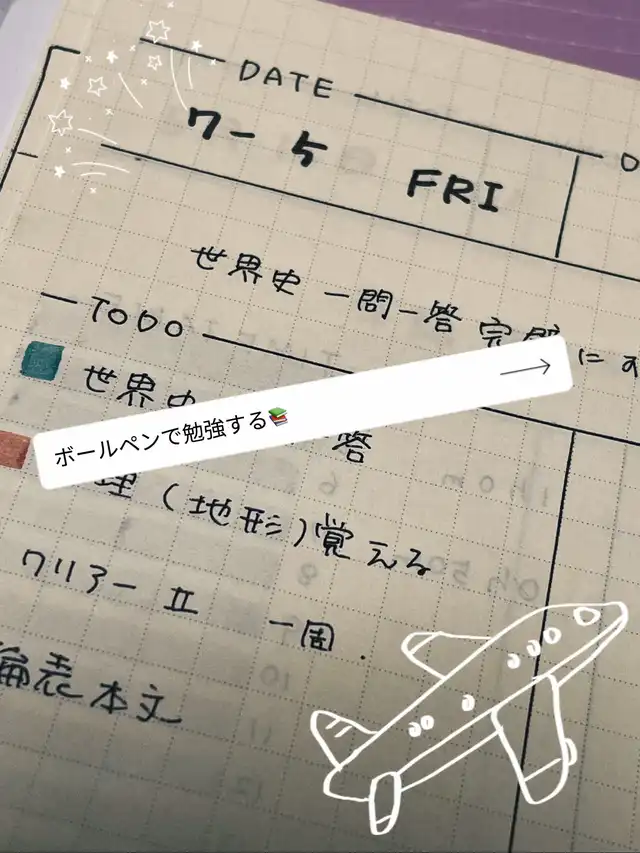 DATE
7-5 FRI
世界史 一問一答 完璧にす
TODO
世界史 答
ボールペンで勉強する📚
理（地形）覚える
クリアー II 一周.
論表本文
6
8
10
11
12